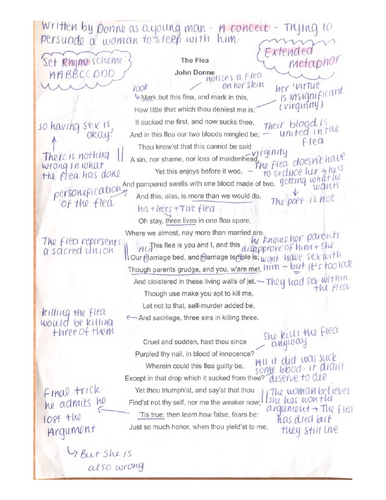 Written by Donne as a young man - A conceit - Trying to
persuade a woman to sleep with him.
Set Rhyme scheme
AABBCCDDD
Extended
metaphor
The Flea
John Donne
notices a flea
on her skin
look
Mark but this flea, and mark in this,
her 'virtue'
is insignificant
(virginity)
How little that which thou deniest me is;
It sucked me first, and now sucks thee,
And in this flea our two bloods mingled be;
Their blood is
united in the
flea
so having sex is
okay?
Thou know'st that this cannot be said
virginity
A sin, nor shame, nor loss of maidenhead,
There is nothing
wrong in what
the flea has done
Yet this enjoys before it woo,
The flea doesn't have
to seduce her → he is
getting what he
wants
The poet is not
personification
of the flea
And pampered swells with one blood made of two,
And this, alas, is more than we would do.
his + hers + The flea
Oh stay, three lives in one flea spare,
Where we almost, nay more than married are.
The flea represents
a sacred union
This flea is you and I, and this
Our marriage bed, and marriage temple is;
Though parents grudge, and you, w'are met,
he knows her parents
disapprove of him + she
wont have sex with
him - but it's too late
And cloistered in these living walls of jet.
They had sex within
the flea
Though use make you apt to kill me,
Let not to that, self-murder added be,
And sacrilege, three sins in killing three.
killing the flea
would be killing
three of them
Cruel and sudden, hast thou since
Purpled thy nail, in blood of innocence?
She kills the flea
anyway
Wherein could this flea guilty be,
Except in that drop which it sucked from thee?
All it did was suck
some blood - it didn't
deserve to die
Yet thou triumph'st, and say'st that thou
Find'st not thy self, nor me the weaker now;
The woman believes
she has won the
argument → The flea
has died but
they still live
'Tis true; then learn how false, fears be:
Just so much honor, when thou yield'st to me,
Final trick:
he admits he
lost the
Argument
But she is
also wrong